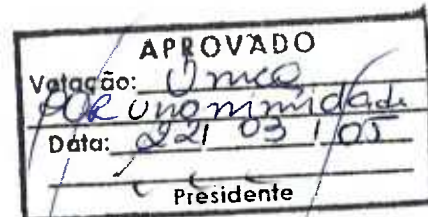 APROVADO
Votação: Única
POR unanimidade
Data: 22/ 03 / 05
Presidente